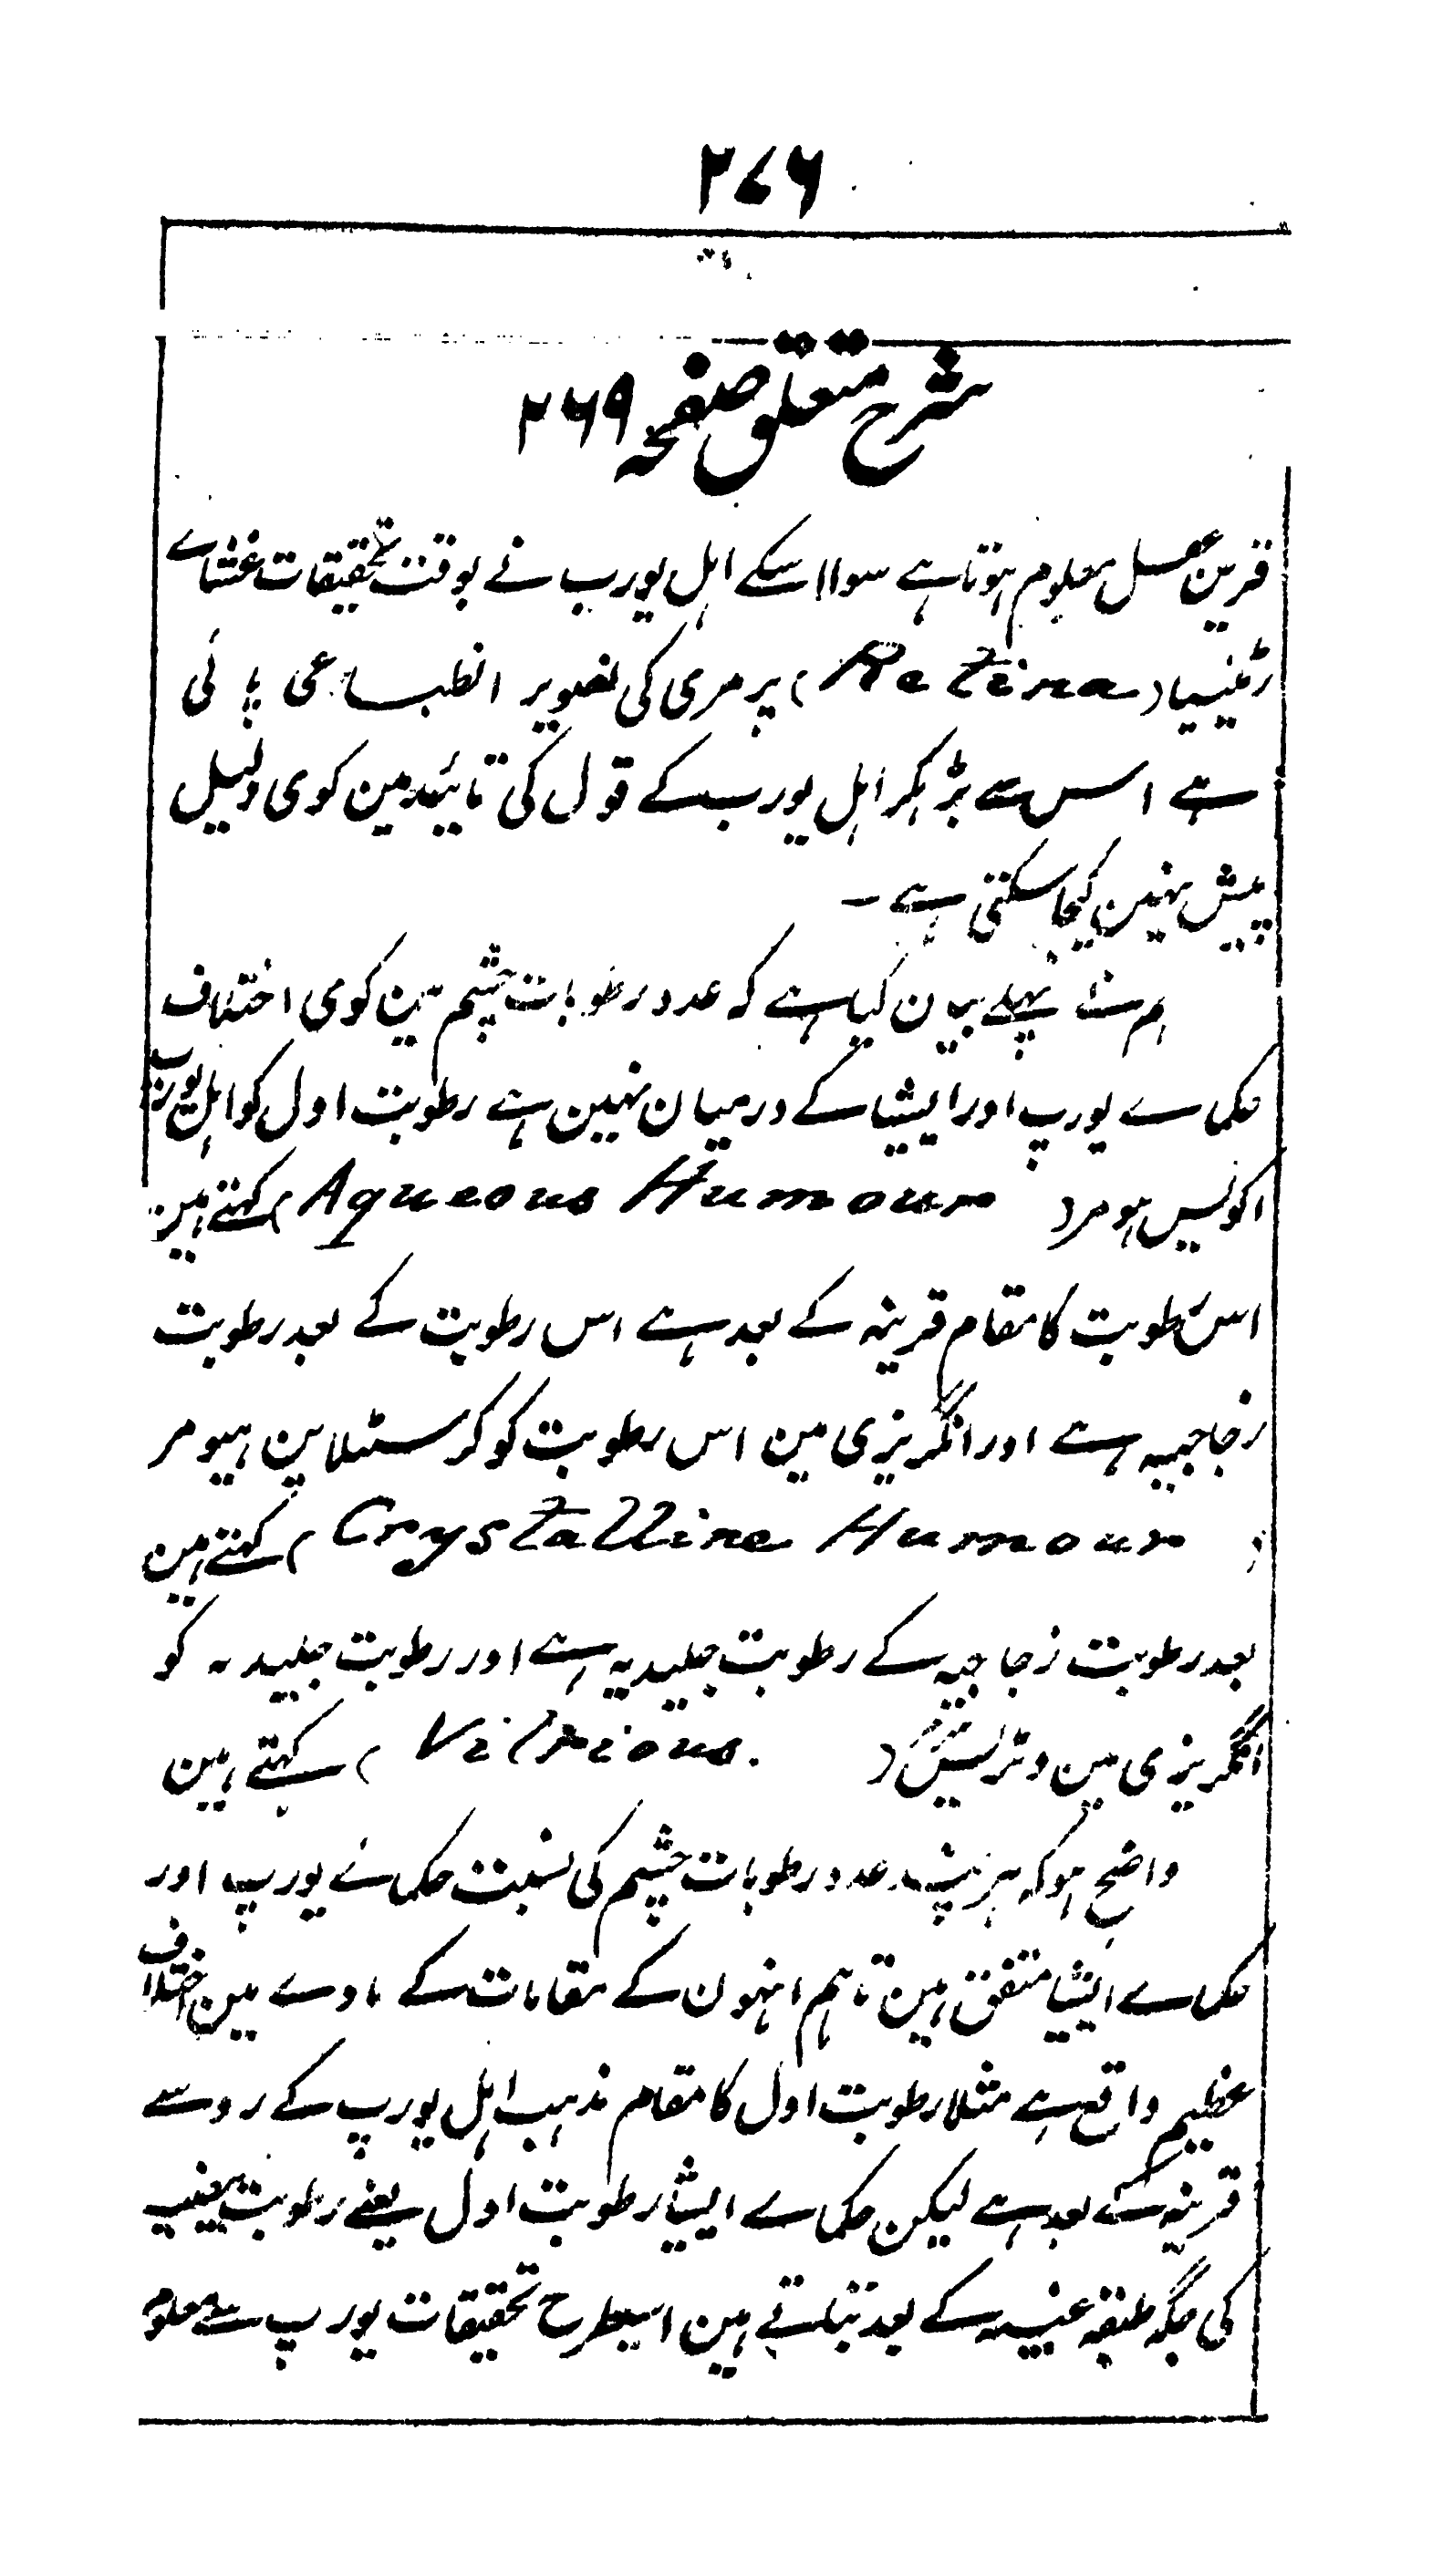 ۲۷۶
شرح متعلق صفحہ ۲۶۹
قرین عقل معلوم ہوتا ہے سوا اسکے اہل یورپ نے بوقت تحقیقات غشاے
رٹینیا ( Retina ) پر مری کی تصویر انطباعی پائی
ہے اس سے بڑہکر اہل یورپ کے قول کی تائید مین کوی دلیل
پیش نہین کیجا سکتی ہے ۔
ہم نے پہلے بیان کیا ہے کہ عدد رطوبات چشم مین کوی اختلاف
حکماے یورپ اور ایشیا کے درمیان نہین ہے رطوبت اول کو اہل یورپ
اکوئیس ہومر ( Aqueous Humour ) کہتے ہین
اس رطوبت کا مقام قرینہ کے بعد ہے اس رطوبت کے بعد رطوبت
زجاجیہ ہے اور انگریزی مین اس رطوبت کو کرسٹلاین ہیومر
( Crystalline Humour ) کہتے ہین
بعد رطوبت زجاجیہ کے رطوبت جلیدیہ ہے اور رطوبت جلیدیہ کو
انگریزی مین وٹریس ( Vitrious. ) کہتے ہین
واضح ہو کہ ہر چند عدد رطوبات چشم کی نسبت حکمائے یورپ اور
حکماے ایشیا متفق ہین تاہم انہون کے مقامات کے مادے مین اختلاف
عظیم واقع ہے مثلا رطوبت اول کا مقام مذہب اہل یورپ کے رو سے
قرینہ کے بعد ہے لیکن حکماے ایشیا رطوبت اول یعنے رطوبت بیضیہ
کی جگہ طبقہ عنبیہ کے بعد بتلاتے ہین اسیطرح تحقیقات یورپ سے معلوم